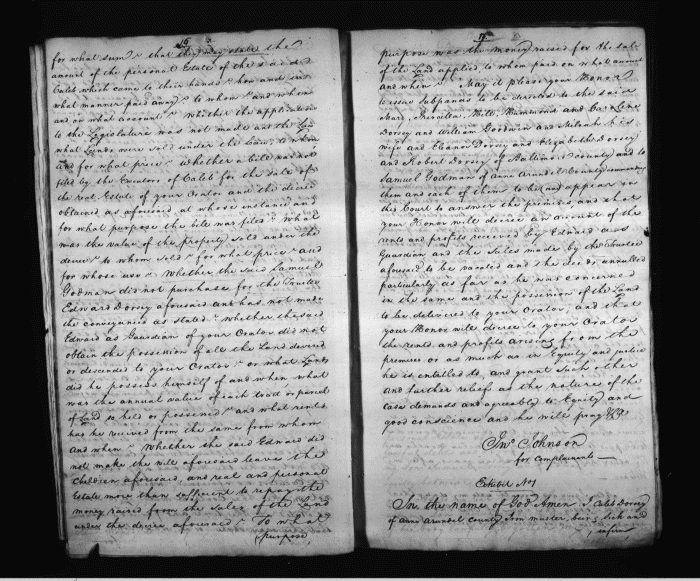 16
for what sum? that they may state the
amount of the personal Estate of the said
Caleb which came to their hands? how and in
what manner paid away? to whom? and when
and on what account? Whether the application
to the Legislature was not made and the Law
what Lands were sold under the Law, to whom
and for what price? Whether a bill was not
filed by the Executors of Caleb for the sale of
the real Estate of your Orator and the decree
obtained as aforesaid, at whose instance and
for what purpose the bill was filed? What
was the value of the property sold under the
decree? to whom sold? for what price? and
for whose use? Whether the said Samuel
Godman did not purchase for the Trustee
Edward Dorsey aforesaid and has not made
the conveyances as stated? Whether the said
Edward as Guardian of your Orator did not
obtain the possession of all the Land devised
or descended to your Orator? or what Lands
did he possess himself of and when, what
was the annual value of each tract or parcel
of Land so held or possessed? and what rents
has he received from the same from whom
and when? Whether the said Edward did
not make the will aforesaid leave the
Children aforesaid, and real and personal
Estate more than sufficient to repay the
money raised from the Sales of the Land
under the decree aforesaid? To what
purpose,
17
purpose was the money raised for the sale
of the Land applied to whom paid on what account
and when? May it please your Honor
to issue Subpœnas to be directed to the said
Mary, Priscilla, Hammond and Caroline
Dorsey and William Goodwin and Milcah his
wife and Eleanor Dorsey and Elizabeth Dorsey
and Robert Dorsey of Baltimore County and to
Samuel Godman of Ann Arundel County commanding
them and each of them to be and appear in
this Court to answer the premises, and that
your Honor will decree an account of the
rents and profits received by Edward as
Guardian and the Sales made by the Trustee
aforesaid to be vacated and the decree annulled
particularly as far as he was concerned
in the same and the possession of the Land
to be delivered to your Orator, and that
your Honor will decree to your Orator
the rents and profits arising from the
premises or as much as in Equity and justice
he is entitled to, and grant such other
and further relief as the nature of the
case demands and agreeably to Equity and
good conscience and he will pray &c.
Jno Johnson
for Complainants
Exhibit No 1
In the name of God Amen I Caleb Dorsey
of Anne Arundel County Iron master, being sick and
infirm